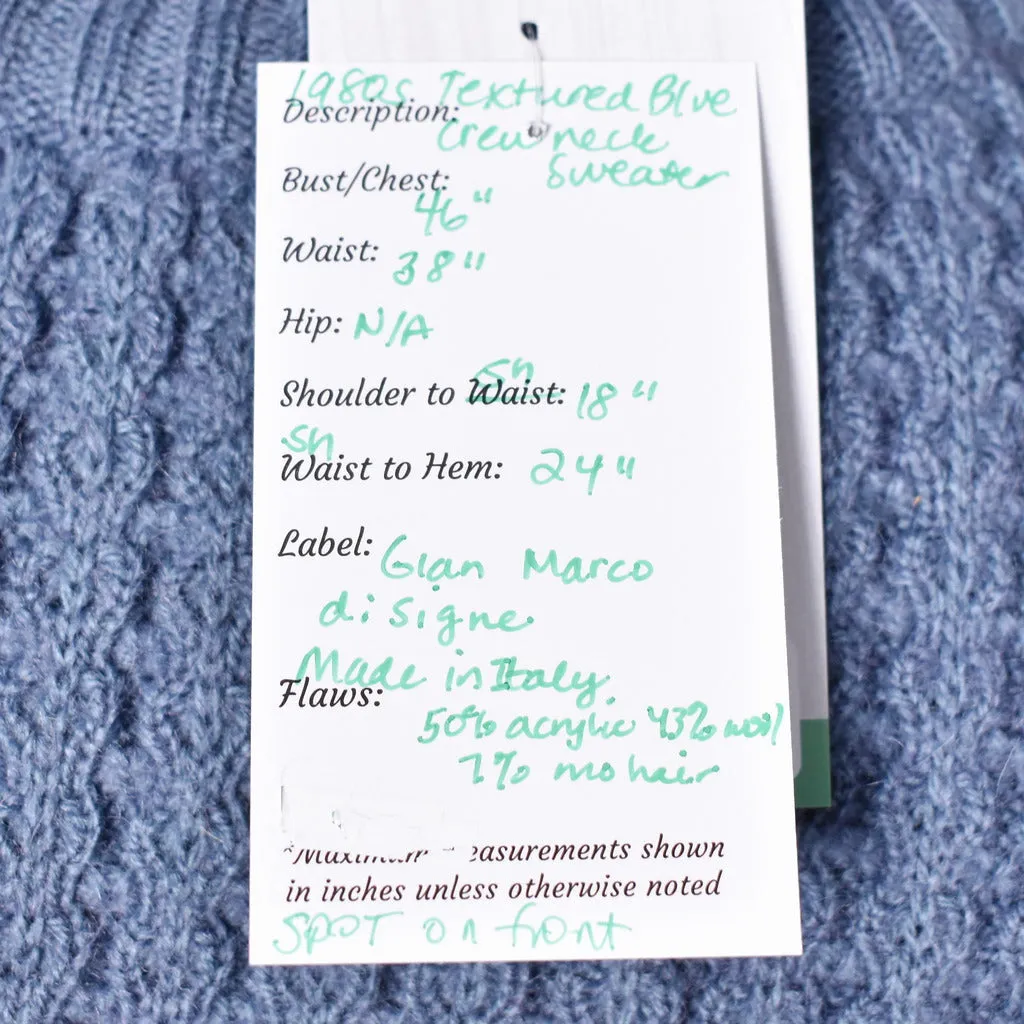 1980s Textured Blue
Description:
Crew neck
Sweater
Bust/Chest:
46"
Waist: 38"
Hip: N/A
Sh
Shoulder to Waist: 18"
Sh
Waist to Hem: 24"
Label: Gian Marco
di Signe
Made in Italy.
Flaws:
50% acrylic 43% wool
7% mohair
easurements shown
in inches unless otherwise noted
SPOT on front